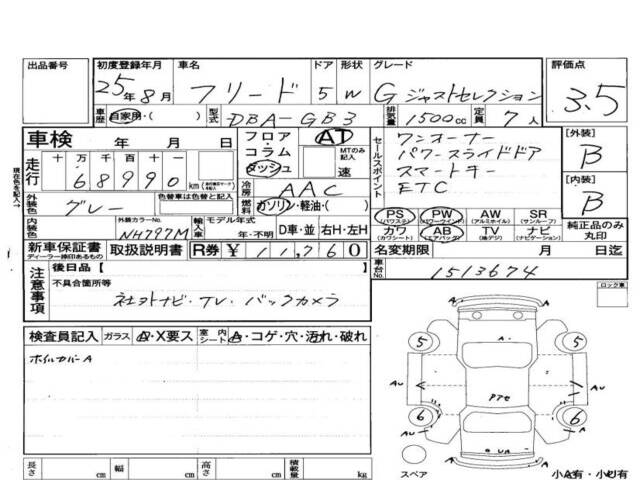 出品番号 初度登録年月 車名 ドア 形状 グレード 評価点
25年8月 フリード 5 W Gジャストセレクション 3.5
車歴 自家用・( ) 型式 DBA-GB3 排気量 1500cc 定員 7人
車検 年 月 日 フロア・コラム ダッシュ AT MTのみ記入 速
現在色を記入→
走行 十 万 千 百 十 一
68990 km
冷房 AAC
外装色 グレー 色替車は色替と記入 燃料 ガソリン・軽油・( )
セールスポイント ワンオーナー
パワースライドドア
スマートキー
ETC
[外装] B
[内装] B
PS (パワステ) PW (パワーウインド) AW (アルミホイル) SR (サンルーフ)
カワ (カワシート) AB (エアバッグ) TV (地デジ) ナビ (ナビゲーション)
純正品のみ丸印
内装色 外装カラーNo. NH787M 輸入車 モデル年式 年・不明 D車・並 右H・左H
新車保証書 ディーラー捺印あるもの 取扱説明書 R券 ¥11,760 名変期限 月 日迄
注意事項 後日品【 】 車台No. 1513674
不具合箇所等
社外ナビ・TV・バックカメラ
ロック車
検査員記入 ガラス A・X要ス 室内シート A・コゲ・穴・汚れ・破れ
ホイルカバーA
5 5
A
AU AU
A
6 6
スペア
小A有・小U有
長さ cm 幅 cm 高さ cm 積載量 kg